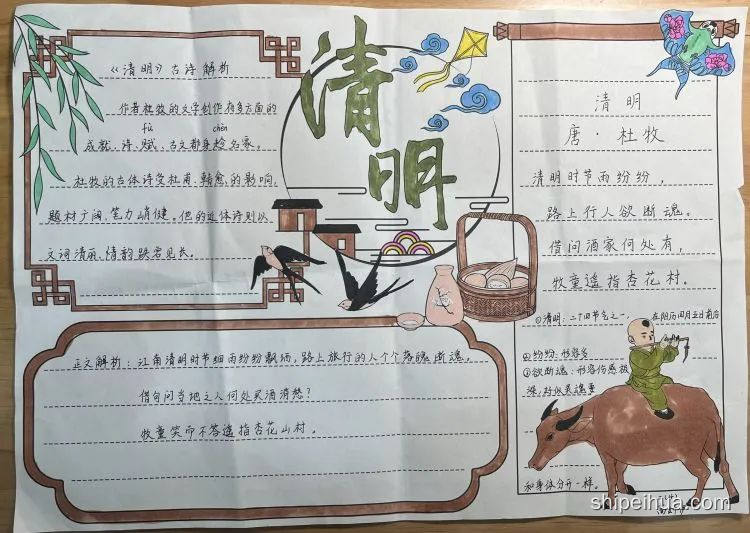 《清明》古诗解析
作者杜牧的文学创作有多方面的
fù chēn
成就、诗、赋、古文都身趁名家。
杜牧的古体诗受杜甫、韩愈、的影响,
题材广阔,笔力峭健。他的近体诗则以
文词清丽、情韵跌宕见长。
清明
清明
唐·杜牧
清明时节雨纷纷,
路上行人欲断魂。
借问酒家何处有,
牧童遥指杏花村。
①清明:二十四节气之一, 在阳历四月五日前后
②纷纷:形容多
③欲断魂:形容伤感极
深,好似灵魂要
和身体分开一样。
正文解析:江南清明时节细雨纷纷飘洒,路上旅行的人个个落魄断魂。
借问当地之人何处买酒消愁?
牧童笑而不答遥指杏花山村。
shipeihua.com